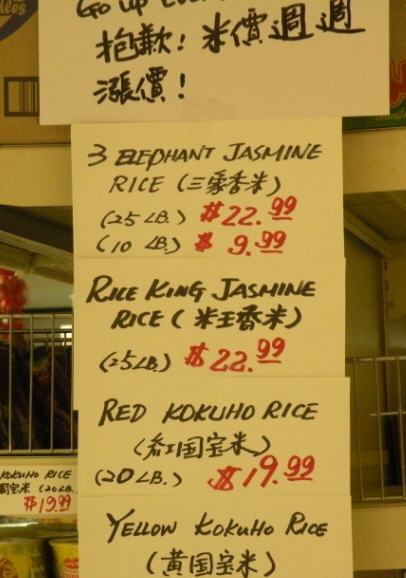 GO UP
抱歉! 米價週週
漲價!
3 ELEPHANT JASMINE
RICE (三象香米)
(25 LB.) $22.99
(10 LB.) $ 9.99
RICE KING JASMINE
RICE (米王香米)
(25LB.) $22.99
RED KOKUHO RICE
(紅国宝米)
(20 LB.) $19.99
KOKUHO RICE
国宝米 (20 LB.)
$19.99
YELLOW KOKUHO RICE
(黄国宝米)